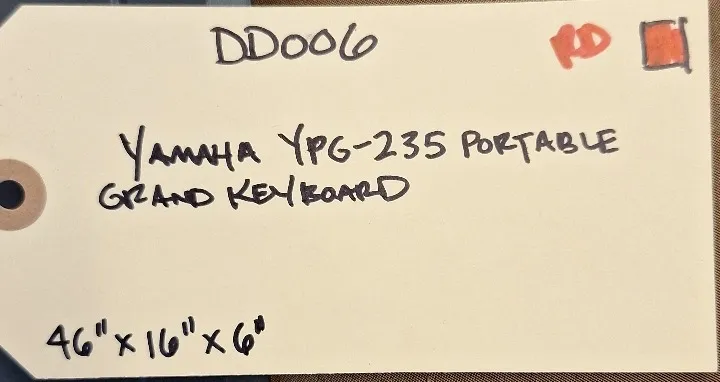 DD006 RD
YAMAHA YPG-235 PORTABLE
GRAND KEYBOARD
46" x 16" x 6"